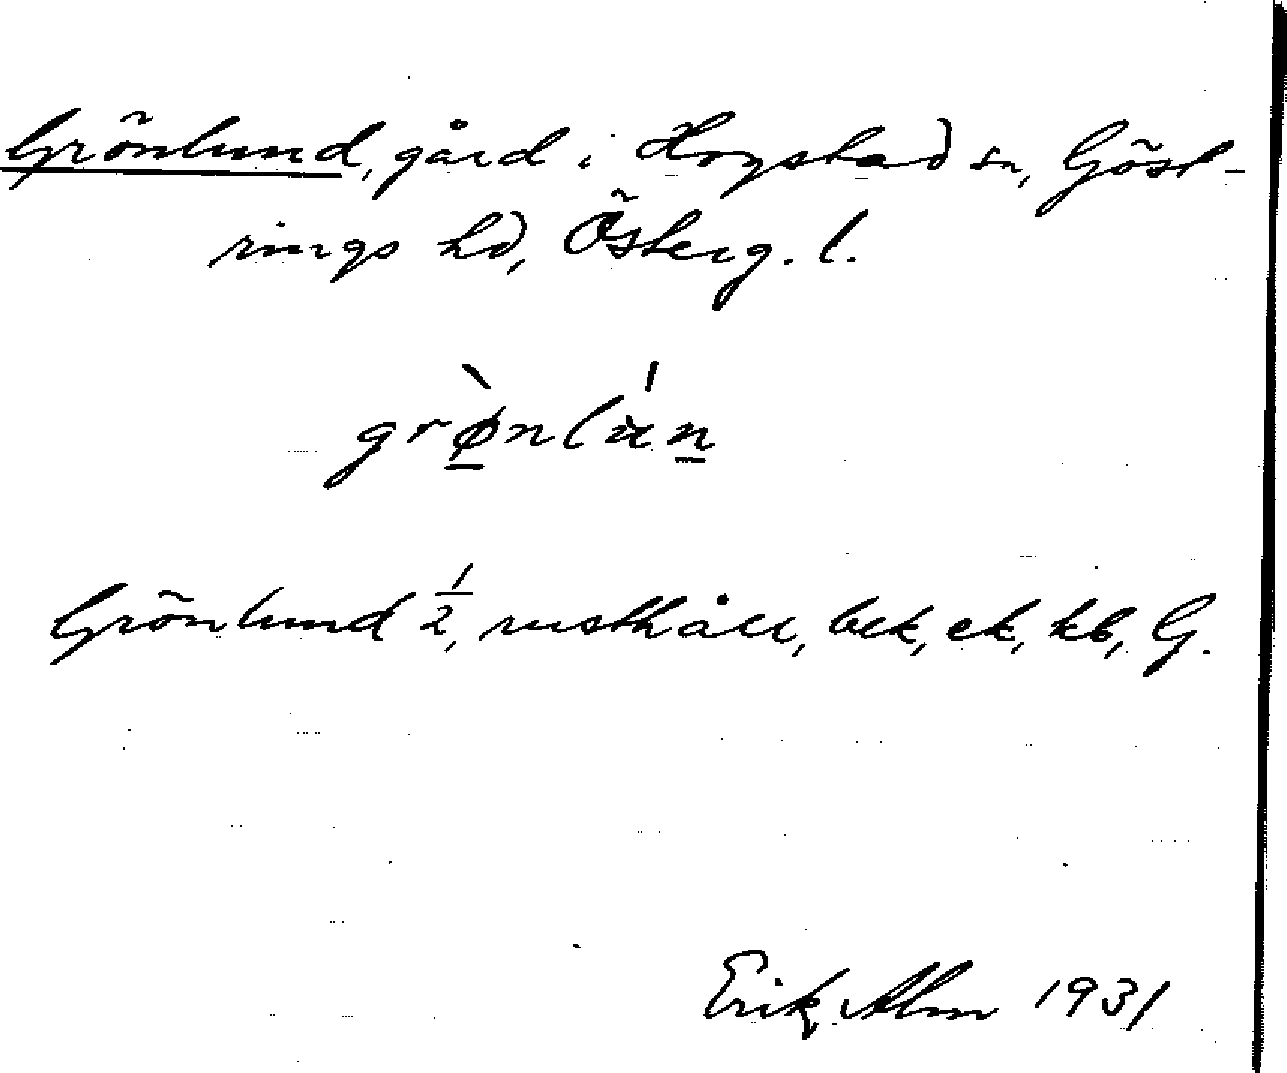 Grönlund, gård i Hogstad sn, Göst-
rings hd, Österg. l.
grø̲̀nlún̲
Grönlund 1/2, rusthåll, bek, ek, kb, G.
Erik Alm 1931